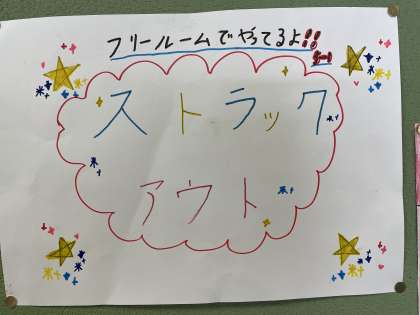 フリールームでやってるよ!!
ストラック
アウト